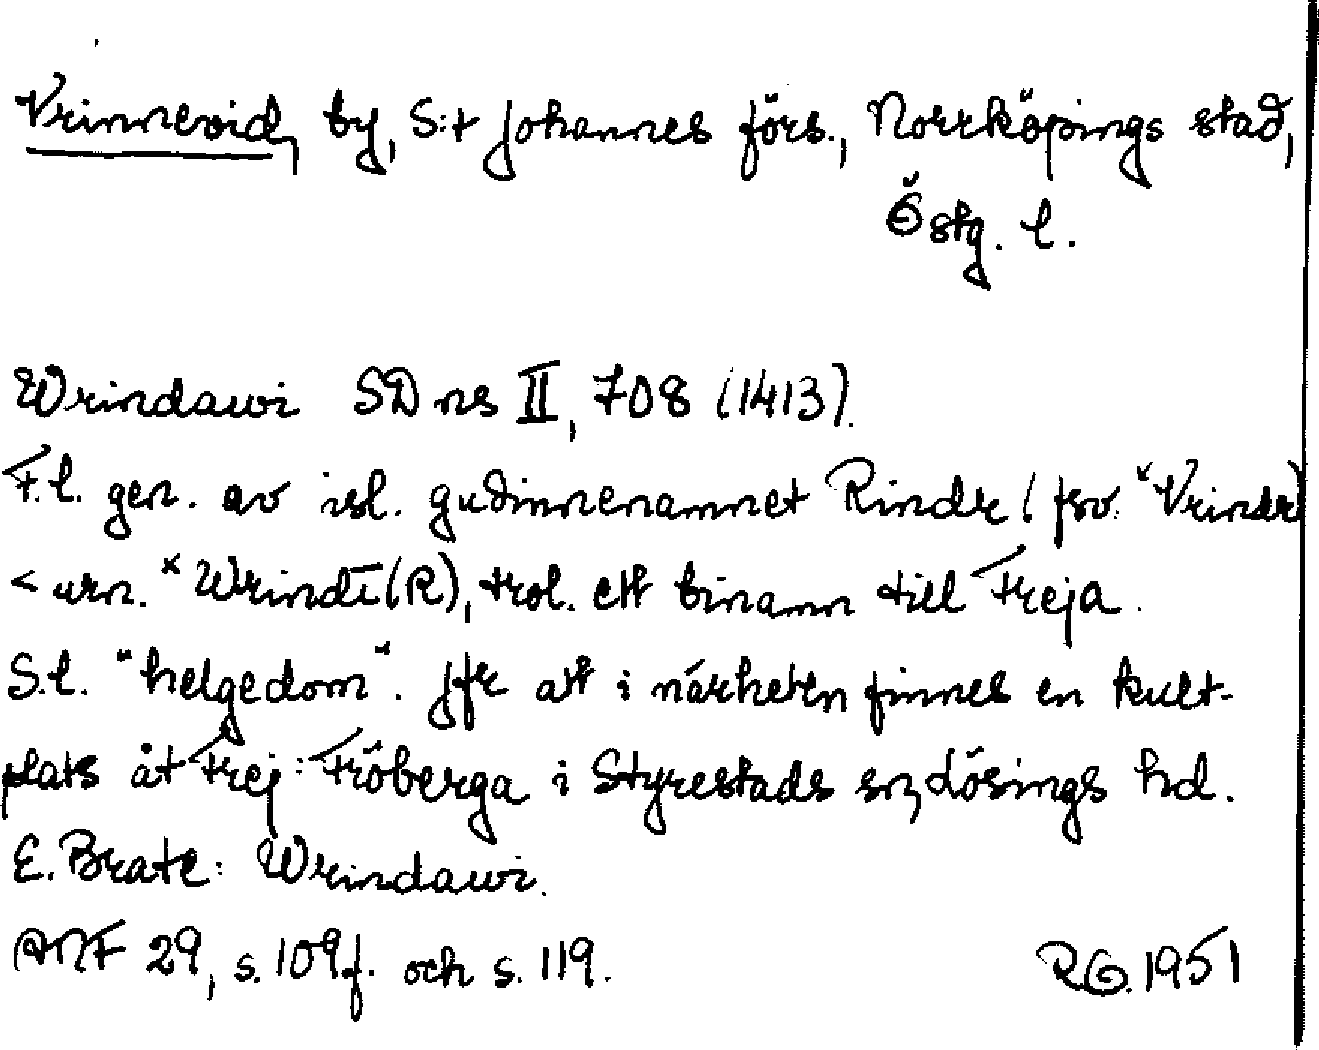 Vrinnevid, by, S:t Johannes förs., Norrköpings stad,
Östg. l.
Wrindawi SD ns II, 708 (1413).
F.l. gen. av isl. gudinnenamnet Rindr (fsv. *Vrindr)
< urn. *Wrindī(R), trol. ett binamn till Freja.
S.l. "helgedom". Jfr att i närheten finnes en kult-
plats åt Frej: Fröberga i Styrestads sn, Lösings hd.
E. Brate: Wrindawi.
ANF 29, s. 109f. och s. 119.
RG. 1951